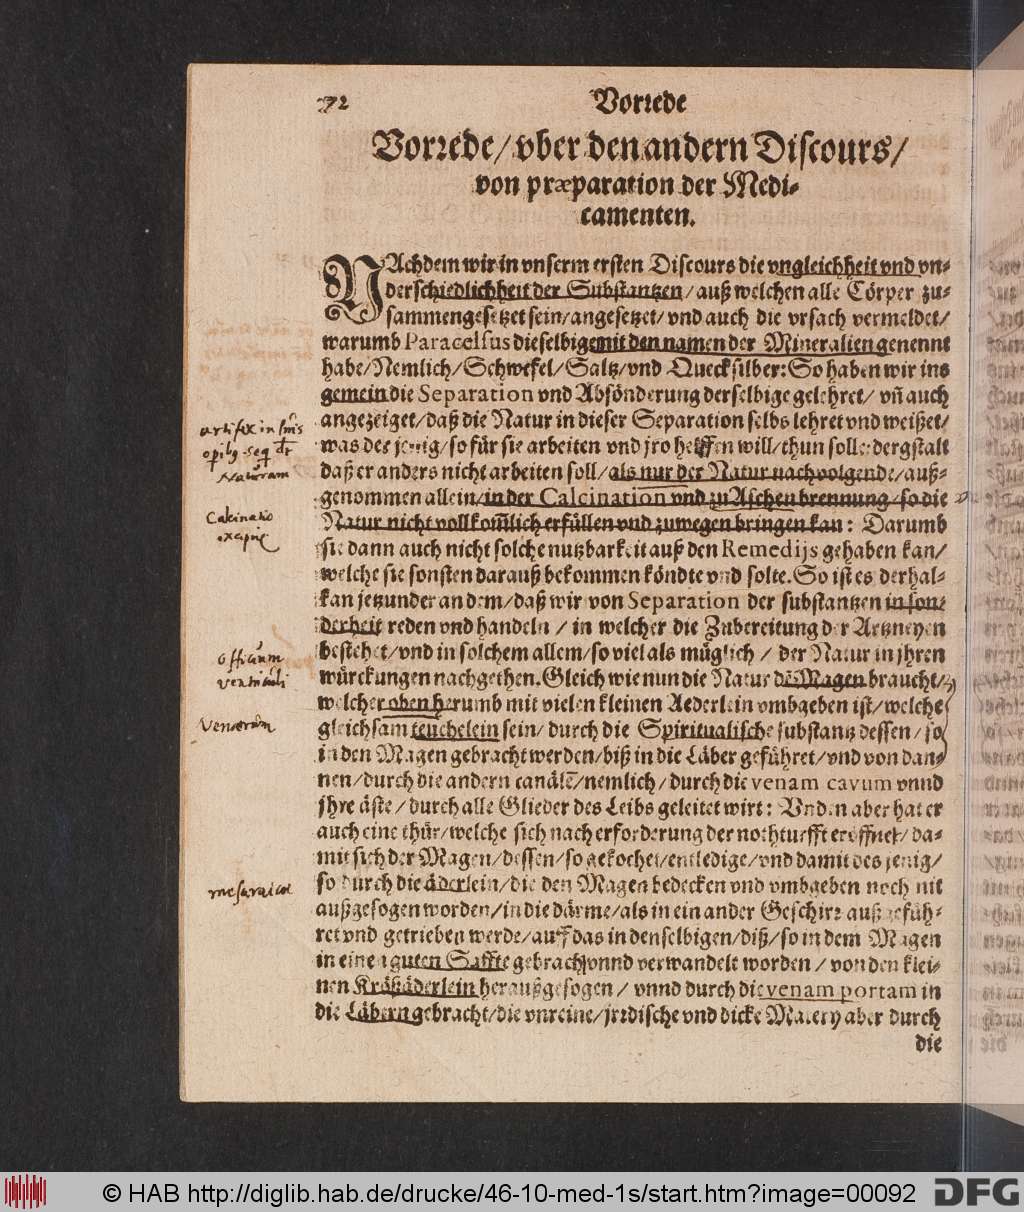 72 Vorrede
Vorrede/ vber den andern Discours/
von præparation der Medi-
camenten.
NAchdem wir in vnserm ersten Discours die vngleichheit vnd vn-
derschiedlichheit der Substantzen/ auß welchen alle Cörper zu-
sammengesetzet sein/ angesetzet/ vnd auch die vrsach vermeldet/
warumb Paracelsus dieselbige mit den namen der Mineralien genennt
habe/ Nemlich/ Schwefel/ Saltz/ vnd Quecksilber: So haben wir ins
gemein die Separation vnd Absönderung derselbige gelehret/ vñ auch
angezeiget/ daß die Natur in dieser Separation selbs lehret vnd weißet/
was der jenig/ so für sie arbeiten vnd jro helffen will/ thun solle: dergstalt
daß er anders nicht arbeiten soll/ als nur der Natur nachvolgende/ auß-
genommen allein/ in der Calcination vnd zu Aschen brennung/ so die
Natur nicht vollkom̃lich erfüllen vnd zuwegen bringen kan: Darumb
sie dann auch nicht solche nutzbarkeit auß den Remedijs gehaben kan/
welche sie sonsten darauß bekommen köndte vnd solte. So ist es derhal-
kan jetzunder an dem/ daß wir von Separation der substantzen in son-
derheit reden vnd handeln / in welcher die Zubereitung der Artzneyen
bestehet/ vnd in solchem allem/ so viel als müglich / der Natur in jhren
würckungen nachgethen. Gleich wie nun die Natur deß Magen braucht/
welcher oben herumb mit vielen kleinen Aederlein vmbgeben ist/ welche
gleichsam teuchelein sein/ durch die Spiritualische substantz dessen/ so
in den Magen gebracht werden/ biß in die Läber geführet/ vnd von dan-
nen/ durch die andern canäle/ nemlich/ durch die venam cavum vnnd
jhre äste/ durch alle Glieder des Leibs geleitet wirt: Vnden aber hat er
auch eine thür/ welche sich nach erforderung der nothturfft eröffnet/ da-
mit sich der Magen/ dessen/ so gekochet/ entledige/ vnd damit des jenig/
so durch die äderlein/ die den Magen bedecken vnd vmbgeben noch nit
außgesogen worden/ in die därme/ als in ein ander Geschirr auß gefüh-
ret vnd getrieben werde/ auff das in denselbigen/ diß/ so in dem Magen
in einen guten Saffte gebracht vnnd verwandelt worden / von den klei-
nen Kräßäderlein heraußgesogen / vnnd durch die venam portam in
die Läbern gebracht/ die vnreine/ jrrdische vnd dicke Matery aber durch
die
artifex in suis
Naturam
Calcinatio
officium
ventriculi
Venarum
mesaraica
© HAB http://diglib.hab.de/drucke/46-10-med-1s/start.htm?image=00092
DFG